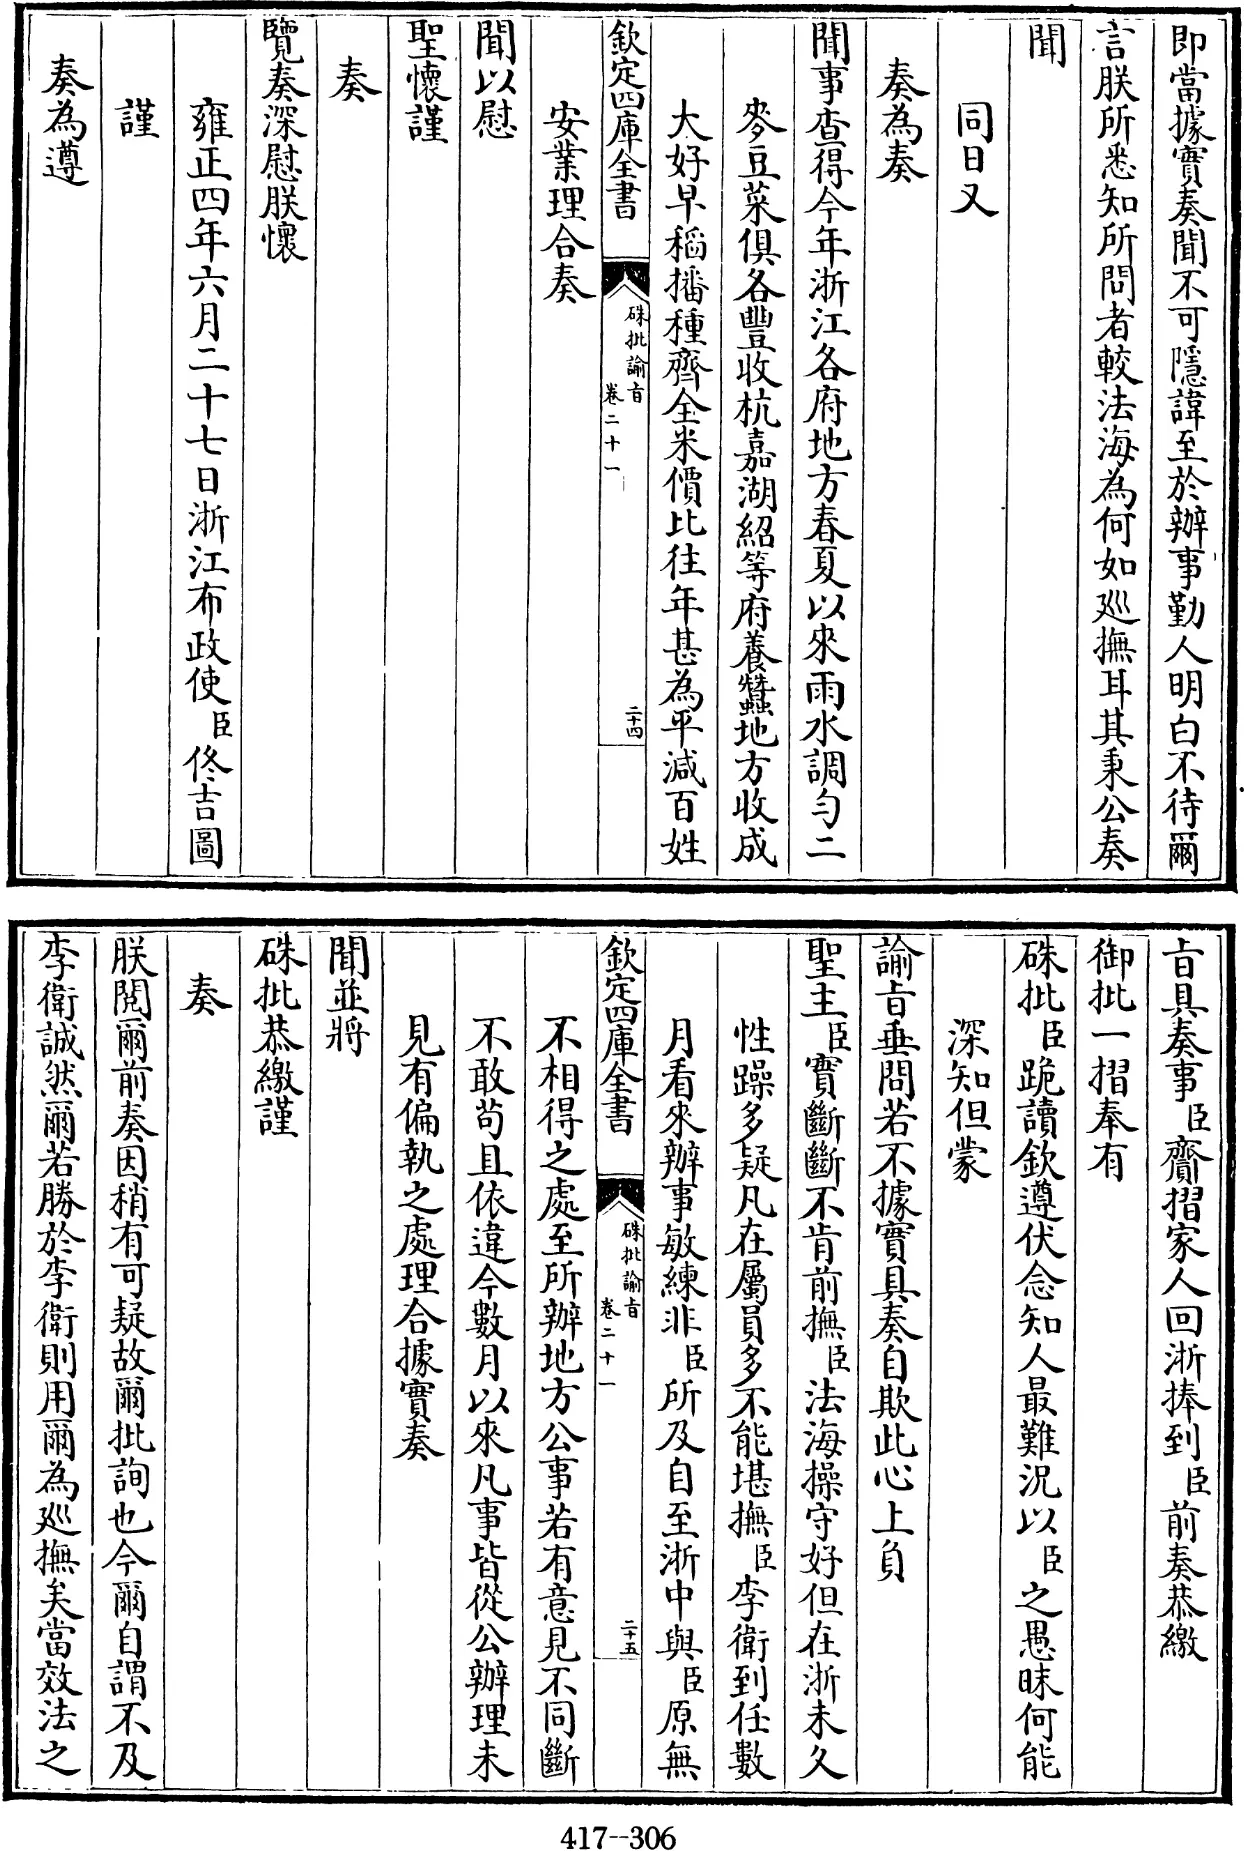 即當據實奏聞不可隱諱至於辦事勤人明白不待爾
言朕所悉知所問者較法海為何如廵撫耳其秉公奏
聞
同日又
奏為奏
聞事查得今年浙江各府地方春夏以來雨水調勻二
麥豆菜俱各豐收杭嘉湖紹等府養蠶地方收成
大好早稻播種齊全米價比往年甚為平減百姓
欽定四庫全書
硃批諭㫖
卷二十一
二十四
安業理合奏
聞以慰
聖懷謹
奏
覽奏深慰朕懷
雍正四年六月二十七日浙江布政使臣佟吉圖
謹
奏為遵
㫖具奏事臣齎摺家人回浙捧到臣前奏恭繳
御批一摺奉有
硃批臣跪讀欽遵伏念知人最難況以臣之愚昧何能
深知但蒙
諭㫖垂問若不據實具奏自欺此心上負
聖主臣實斷斷不肯前撫臣法海操守好但在浙未久
性躁多疑凡在屬員多不能堪撫臣李衛到任數
月看來辦事敏練非臣所及自至浙中與臣原無
欽定四庫全書
硃批諭㫖
卷二十一
二十五
不相得之處至所辦地方公事若有意見不同斷
不敢苟且依違今數月以來凡事皆從公辦理未
見有偏執之處理合據實奏
聞並將
硃批恭繳謹
奏
朕閱爾前奏因稍有可疑故爾批詢也今爾自謂不及
李衛誠然爾若勝於李衛則用爾為廵撫矣當效法之
417--306